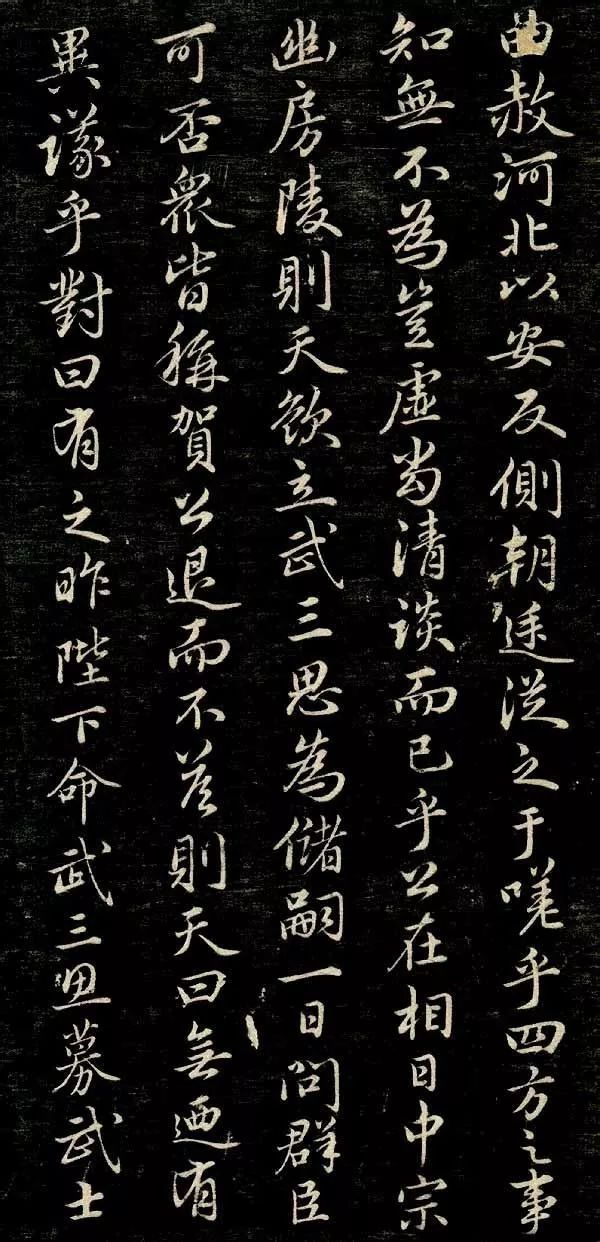 曲赦河北以安反側朝廷從之于嗟乎四方之事
知無不為豈虛尚清談而已乎公在相日中宗
幽房陵則天欲立武三思為儲嗣一日問群臣
可否衆皆稱賀公退而不荅則天曰無迺有
異議乎對曰有之昨陛下命武三思募武士